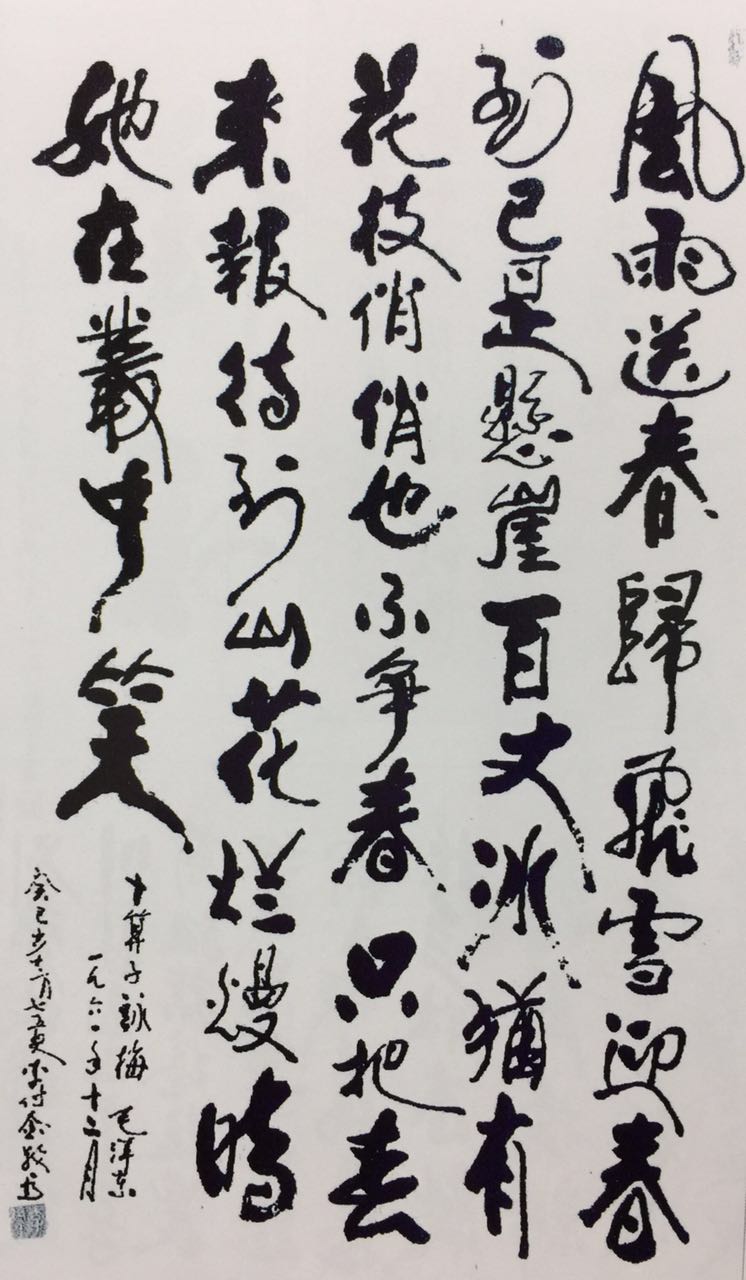 風雨送春歸飛雪迎春
到已是懸崖百丈冰猶有
花枝俏俏也不争春只把春
来報待到山花烂熳時
她在叢中笑
卜算子詠梅 毛澤东
一九六一年十二月
癸巳